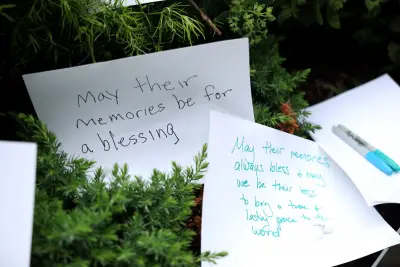 May their
memories be for
a blessing
May their memories
always bless & may
we be their
to bring a
lasting peace to
world